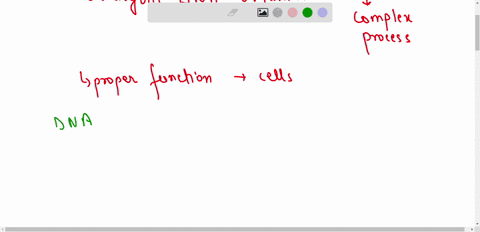 Complex
process
↳ proper function → cells
DNA